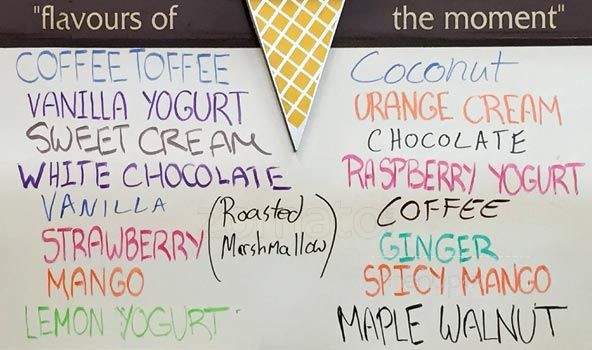 "flavours of the moment"
COFFEE TOFFEE
VANILLA YOGURT
SWEET CREAM
WHITE CHOCOLATE
VANILLA
STRAWBERRY
MANGO
LEMON YOGURT
(Roasted
Marshmallow)
Coconut
ORANGE CREAM
CHOCOLATE
RASPBERRY YOGURT
COFFEE
GINGER
SPICY MANGO
MAPLE WALNUT